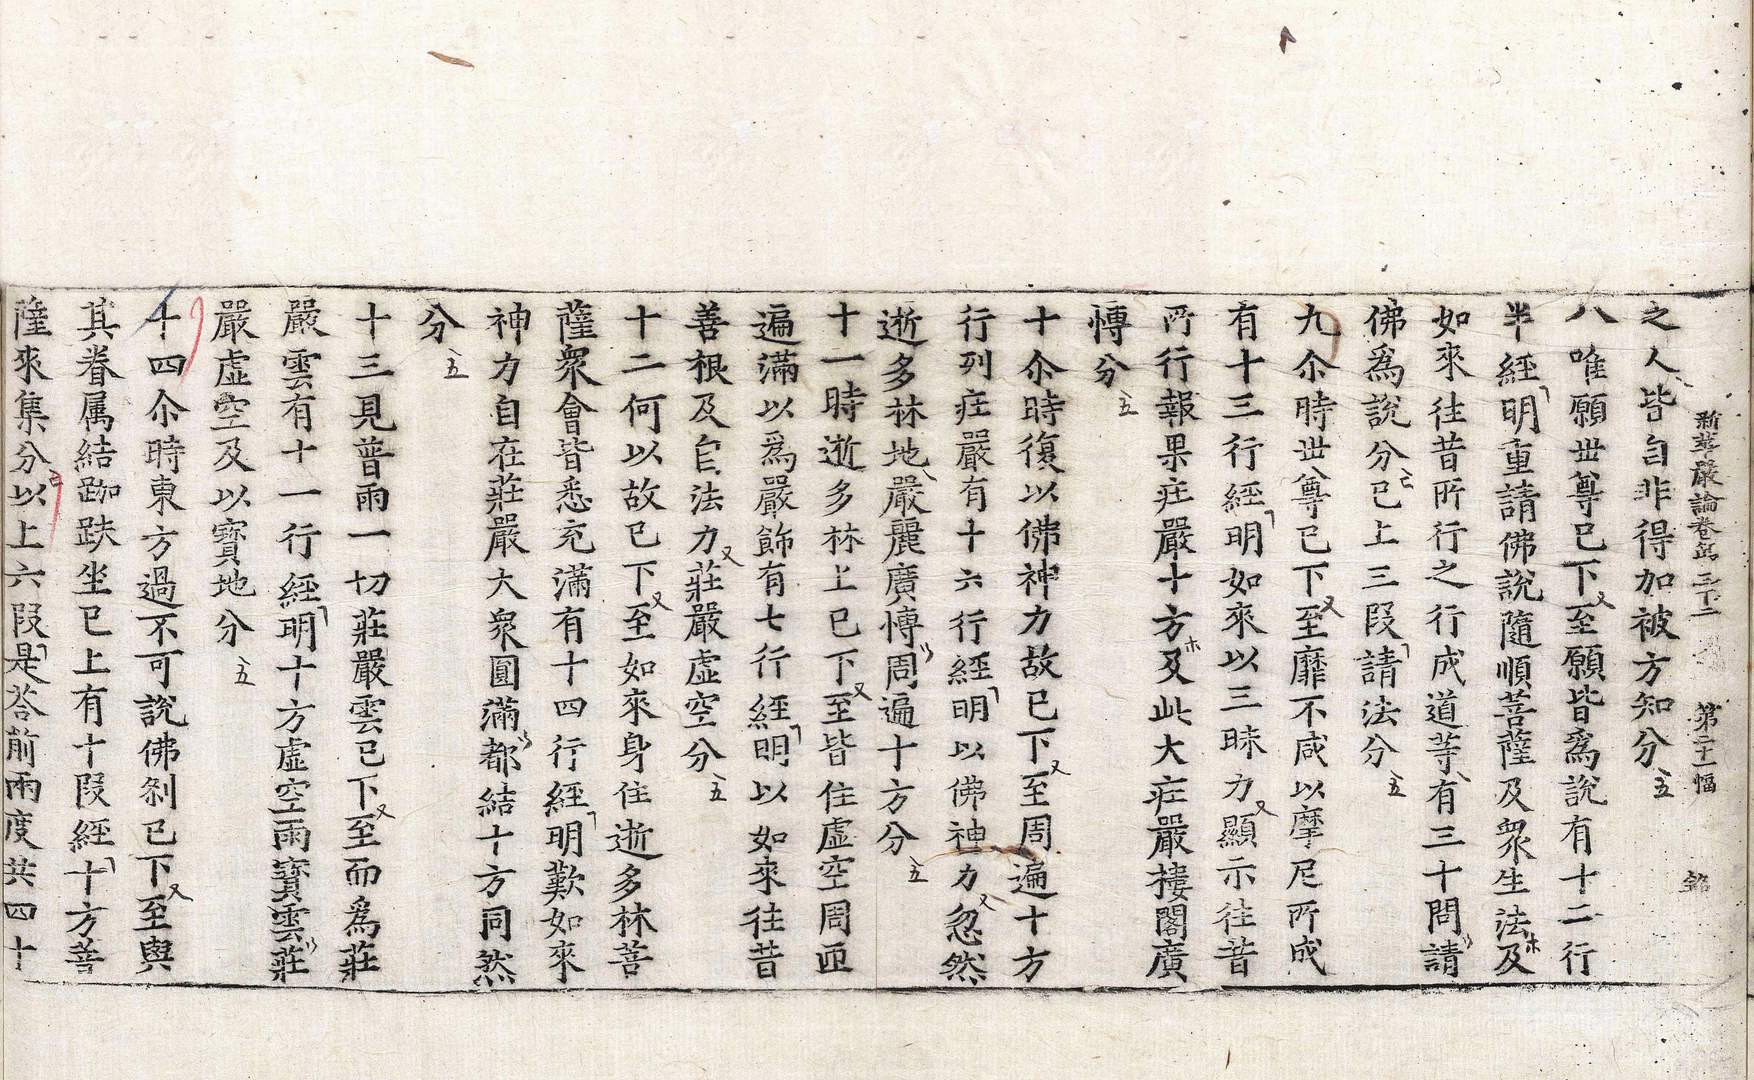 新華嚴論卷第三十二 第二十一幅
之人皆自非得加被方知分
八唯願世尊已下至願皆爲說有十二行
半經明重請佛說隨順菩薩及衆生法及
如來往昔所行之行成道等有三十問請
佛爲說分已上三段請法分
九尒時世尊已下至靡不咸以摩尼所成
有十三行經明如來以三昧力顯示往昔
所行報果庄嚴十方及此大庄嚴樓閣廣
愽分
十尒時復以佛神力故已下至周遍十方
行列庄嚴有十六行經明以佛神力忽然
逝多林地嚴麗廣愽周遍十方分
十一時逝多林上已下至皆住虛空周匝
遍滿以爲嚴飾有七行經明以如來往昔
善根及自法力莊嚴虛空分
十二何以故已下至如來身住逝多林菩
薩衆會皆悉充滿有十四行經明歎如來
神力自在莊嚴大衆圓滿都結十方同然
分
十三見普雨一切莊嚴雲已下至而爲莊
嚴雲有十一行經明十方虛空雨寶雲莊
嚴虛空及以寶地分
十四尒時東方過不可說佛刹已下至與
其眷属結跏趺坐已上有十段經十方菩
薩來集分以上六段是荅前兩度共四十